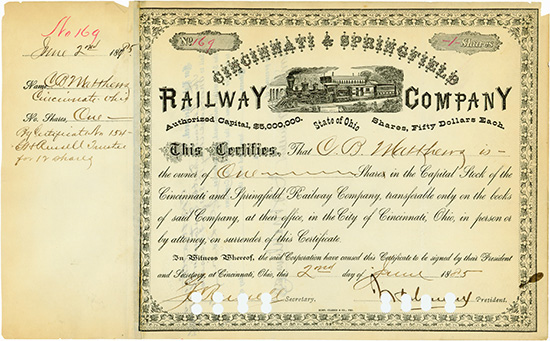 No 169
June 2nd 1885
Name C B Matthews
Cincinnati Ohio
No. Shares, One
By Certificate No
for 12 shares
No. 169
1 Shares
CINCINNATI & SPRINGFIELD
RAILWAY COMPANY
Authorized Capital, $5,000,000. State of Ohio Shares, Fifty Dollars Each.
This Certifies, That C. B. Matthews is
the owner of One Shares in the Capital Stock of the
Cincinnati and Springfield Railway Company, transferable only on the books
of said Company, at their office, in the City of Cincinnati, Ohio, in person or
by attorney, on surrender of this Certificate.
In Witness Whereof, the said Corporation have caused this Certificate to be signed by their President
and Secretary, at Cincinnati, Ohio, this 2nd day of June 1885
Secretary. President.